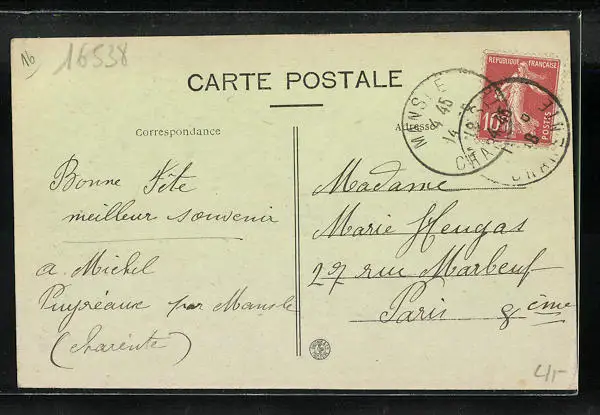 16
16538
CARTE POSTALE
Correspondance
Adresse
RÉPUBLIQUE FRANÇAISE
10
POSTES
MANSLE
4 45
14
CHARENTE
Bonne Fête
meilleur souvenir
a. Michel
Puyréaux par Mansle
(Charente)
Madame
Marie Heugas
27 rue Marbeuf
Paris 8eme